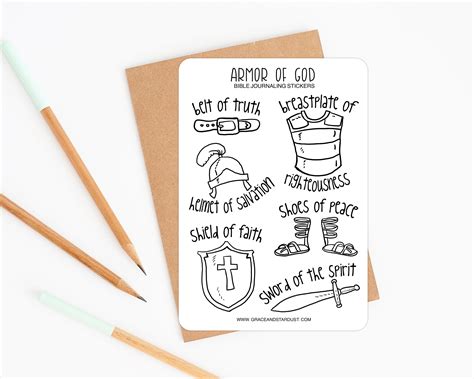 ARMOR OF GOD
BIBLE JOURNALING STICKERS
belt of truth
breastplate of
righteousness
helmet of salvation
shoes of peace
shield of faith
sword of the spirit
WWW.GRACEANDSTARDUST.COM